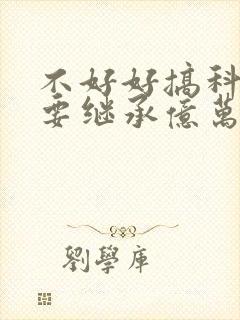 不好好搞科
要继承億萬
劉學庫